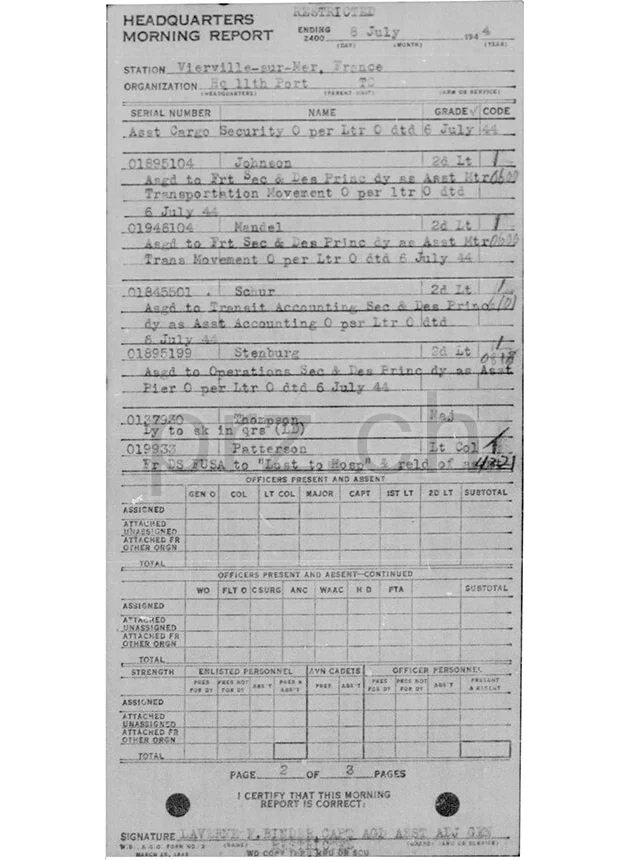 RESTRICTED
HEADQUARTERS
MORNING REPORT
ENDING 2400 8 July 1944
(DAY) (MONTH) (YEAR)
STATION Vierville-sur-Mer, France
ORGANIZATION Hq 11th Port TC
(HEADQUARTERS) (PARENT UNIT) (ARM OR SERVICE)
SERIAL NUMBER NAME GRADE CODE
Asst Cargo Security O per Ltr O dtd 6 July 44
01895104 Johnson 2d Lt 1
Asgd to Frt Sec & Des Princ dy as Asst Mtr 0600
Transportation Movement O per ltr O dtd
6 July 44
01946104 Mandel 2d Lt 1
Asgd to Frt Sec & Des Princ dy as Asst Mtr 0600
Trans Movement O per Ltr O dtd 6 July 44
01845501 Schur 2d Lt 1
Asgd to Transit Accounting Sec & Des Princ 6101
dy as Asst Accounting O per Ltr O dtd
6 July 44
01895199 Stenburg 2d Lt 1
Asgd to Operations Sec & Des Princ dy as Asst
Pier O per Ltr O dtd 6 July 44
0137930 Thompson Maj
Dy to sk in qrs (LD)
019933 Patterson Lt Col
Fr DS FUSA to "Lost to Hosp" & reld of
OFFICERS PRESENT AND ABSENT
GEN O COL LT COL MAJOR CAPT 1ST LT 2D LT SUBTOTAL
ASSIGNED
ATTACHED UNASSIGNED
ATTACHED FR OTHER ORGN
TOTAL
OFFICERS PRESENT AND ABSENT—CONTINUED
WO FLT O C SURG ANC WAAC H D PTA SUBTOTAL
ASSIGNED
ATTACHED UNASSIGNED
ATTACHED FR OTHER ORGN
TOTAL
STRENGTH ENLISTED PERSONNEL AVN CADETS OFFICER PERSONNEL
PRES FOR DY PRES NOT FOR DY ABS'T PRES & ABS'T PRES ABS'T PRES FOR DY PRES NOT FOR DY ABS'T PRESENT & ABSENT
ASSIGNED
ATTACHED UNASSIGNED
ATTACHED FR OTHER ORGN
TOTAL
PAGE 2 OF 3 PAGES
I CERTIFY THAT THIS MORNING
REPORT IS CORRECT:
SIGNATURE LAVERNE F. BINDER CAPT AGD ASST ADJ GEN
W. D., A. G. O. FORM NO. 2 (NAME) RESTRICTED (GRADE) (ARM OR SERVICE)